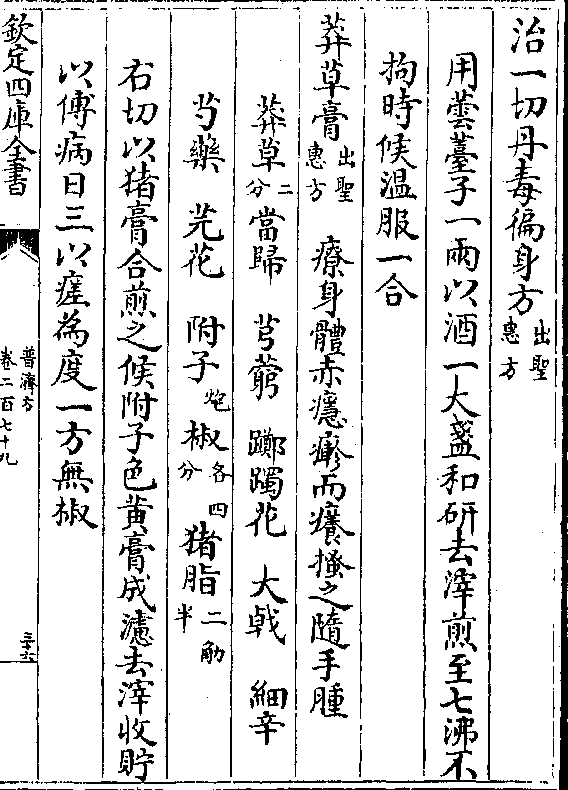 治一切丹毒徧身方出聖惠方
用蕓薹子一兩以酒一大盞和研去滓煎至七沸不
拘時候温服一合
莽草膏出聖惠方 療身體赤癮㾦而癢搔之隨手腫
莽草二分 當歸 芎藭 躑躅花 大戟 細辛
芍藥 芫花 附子炮 椒各四分 猪脂二觔半
右切以猪膏合煎之候附子色黄膏成濾去滓收貯
以傅病日三以瘥為度一方無椒
欽定四庫全書
普濟方
卷二百七十九
三十六